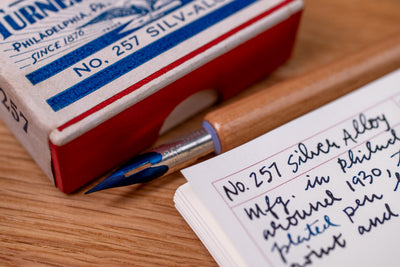 TURNER
PHILADELPHIA, PA.
SINCE 1876
NO. 257 SILV-AL
257
No. 257 Silver Alloy
Mfg. in Philad
around 1930,
plated pen
point and